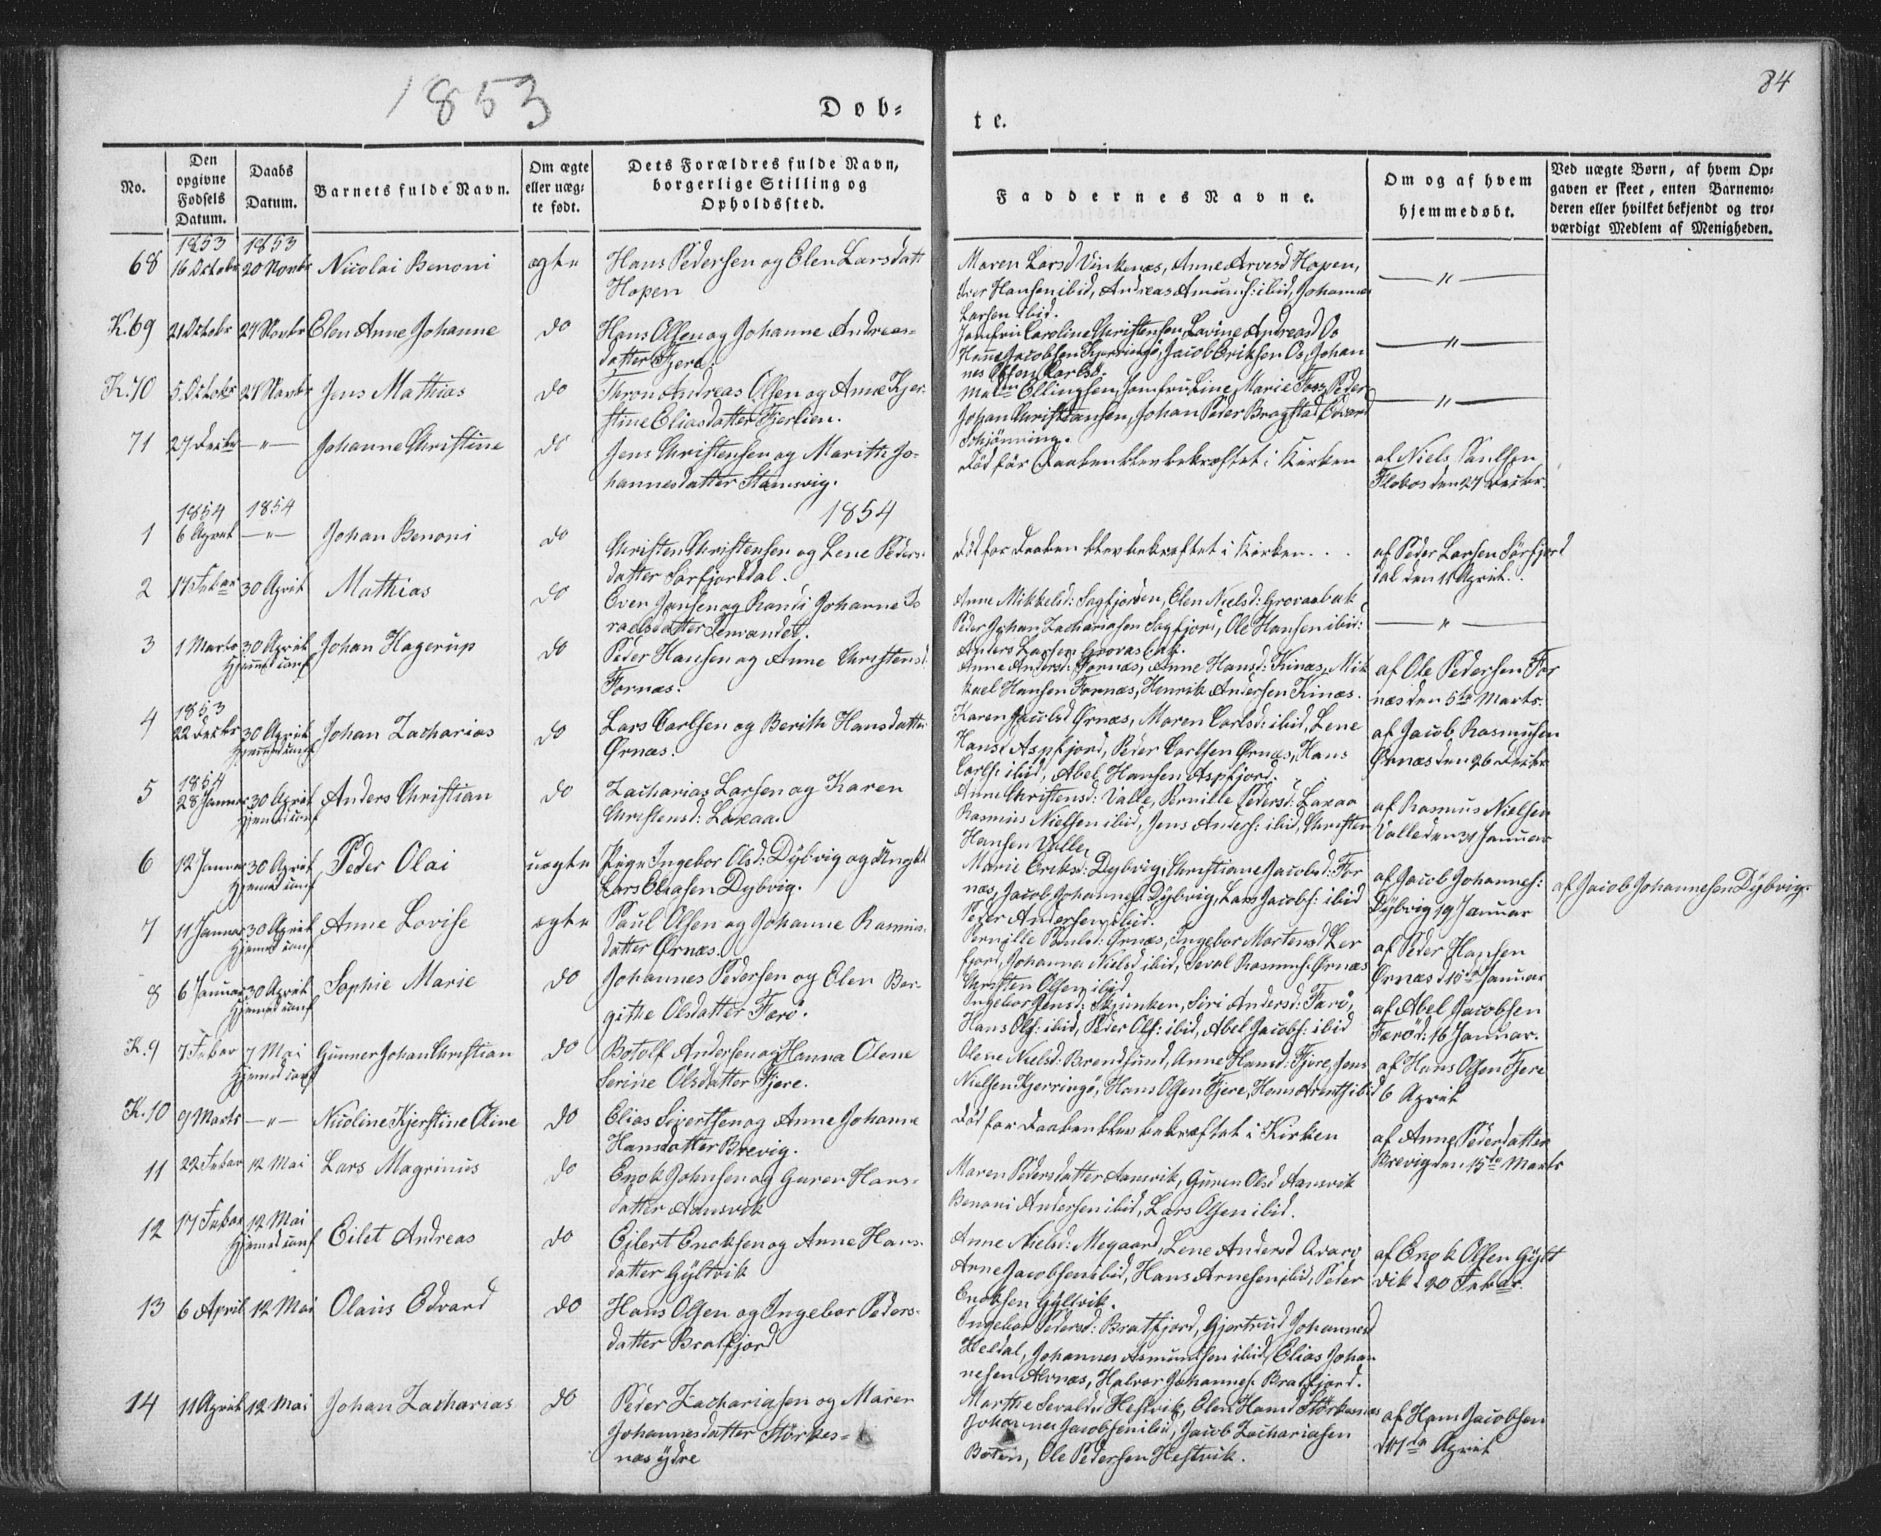 84
1853
Døb-
te.
No.
Den opgivne Fødsels Datum.
Daabs Datum.
Barnets fulde Navn.
Om ægte eller uægte født.
Dets Forældres fulde Navn, borgerlige Stilling og Opholdssted.
Faddernes Navne.
Om og af hvem hjemmedøbt.
Ved uægte Børn, af hvem Opgaven er skeet, enten Barnemoderen eller hvilket bekjendt og troværdigt Medlem af Menigheden.
1853 1853
68 16 Octobr 20 Novbr Nicolai Benoni ægte Hans Pedersen og Elen Larsdatt
Hopen
Maren Larsd Vinkenæs, Anne Arvesd Hopen,
Iver Hansen ibid, Andreas Amunds: ibid, Johannes
Larsen ibid.
— " —
K.69 21 Octobr 27 Novbr Elen Anne Johanne do Hans Olsen og Johanne Andreas-
datter Fjere.
Jomfru Caroline Christensen, Lovine Andreasd Os
Hanne Jacobsen Kjerringø, Jacob Eriksen Os, Johan
— " —
K.70 5 Octobr 27 Novbr Jens Mathias do Thron Andreas Olsen og Anne Kjer-
stine Eliasdatter Fjerlien.
Madm Ellingsen, Jomfru Line Marie Foss, Peder
Johan Christiansen, Johan Peder Bragstad, Edvard
Schjønning.
— " —
71 27 Decbr — " — Johanne Christine do Jens Christensen og Marith Jo-
hannesdatter Stamsvig.
Død før Daaben blev bekræftet i Kirken
af Niels Paulsen
Flobos den 27 Decbr.
1854 1854 1854
1 6 April — " — Johan Benoni do Christen Christensen og Lene Peders-
datter Sørfjorddal.
Død før Daaben blev bekræftet i Kirken...
af Peder Larsen Sørfjord
dal den 11 April.
2 17 Febar 30 April Mathias do Even Jensen og Randi Johanne Is
raelsdatter Tenvandet.
Anne Mikkelsd: Sagfjorden, Elen Nielsd: Grovasbak
Peder Johan Zachariasen Sagfjord, Ole Hansen ibid:
Anders Larsen Grovasbak.
— " —
3 1 Marts 30 April Johan Hagerup do Peder Hansen og Anne Christensd:
Hjemmed conf
Fornæs.
Anne Andersd: Fornæs, Anne Hansd: Kinæs, Mik
kael Hansen Fornæs, Henrik Andersen Kinæs.
af Ole Pedersen For
næs den 5te Marts.
1853
4 22 Decbr 30 April Johan Zacharias do Lars Carlsen og Berith Hansdatter
Hjemmed conf
Ørnæs.
Karen Jacobsd Ørnæs, Maren Carlsd: ibid, Lene
Hansd Aspfjord, Peder Carlsen Ørnæs, Hans
Carls: ibid, Abel Hansen Aspfjord.
af Jacob Rasmusen
Ørnæs den 26 Decbr
1854
5 28 Januar 30 April Anders Christian do Zacharias Larsen og Karen
Hjemmd conf
Christensd: Laxaa.
Anne Christensd: Valle, Pernille Pedersd: Laxaa
Rasmus Nielsen ibid, Jens Anders: ibid, Christen
Hansen Valle,
af Rasmus Nielsen
Valle den 31 Januar
6 12 Januar 30 April Peder Olai uægte Pige Ingebor Olsd: Dybvig og Ungkl
Hjemed conf
Lars Eliasen Dybvig.
Marie Eriksd: Dybvig, Christiane Jacobsd: For
næs, Jacob Johannes: Dybvig, Lars Jacobs: ibid
Peder Andersen ibid.
af Jacob Johannes:
Dybvig 19 Januar
af Jacob Johannesen Dybvig.
7 11 Januar 30 April Anne Lovise ægte Paul Olsen og Johanne Rasmus-
Hjemed conf
datter Ørnæs.
Pernille Paulsd: Ørnæs, Ingebor Mortensd Ler
fjord, Johanna Nielsd ibid, Seval Rasmus: Ørnæs
Christen Olsen ibid
af Peder Hansen
Ørnæs d 15de Januar
8 6 Januar 30 April Sophie Marie do Johannes Pedersen og Elen Ber-
Hjemed conf
githe Olsdatter Færø.
Ingebor Jensd: Skjunken, Siri Andersd: Farø,
Hans Ols: ibid, Peder Ols: ibid, Abel Jacobs: ibid
af Abel Jacobsen
Færø d: 16 Januar.
K.9 7 Febar 7 Mai Gunner Johan Christian do Botolf Andersen og Hanna Olene
Hjemed conf
Serine Olsdatter Fjere.
Olene Nielsd: Brendsund, Anne Hansd: Fjere, Jens
Nielsen Kjerringø, Hans Olsen Fjere, Hans Arnts: ibid
af Hans Olsen Fjere
6 April
K.10 9 Marts — " — Nicoline Kjerstine Oline do Elias Sivertsen og Anne Johanne
Hansdatter Brevig.
Død før Daaben blev bekræftet i Kirken
af Anne Pedersdatter
Brevig den 15de Marts
11 22 Febar 12 Mai Lars Magrinus do Enok Johnsen og Guren Hans-
datter Aamsvik
Maren Pedersdatter Aamsvik, Guren Olsd Aamsvik
Benoni Andersen ibid, Lars Olsen ibid.
12 17 Febar 12 Mai Eilet Andreas do Eilert Enoksen og Anne Hans-
Hjemed conf
datter Gyltvik
Anne Nielsd: Megaard, Lene Andersd Qvarv
Arne Jacobsen ibid, Hans Arnesen ibid, Peder
Enoksen Gyltvik.
af Enok Olsen Gylt
vik d 20 Febar.
13 6 April 12 Mai Olaus Edvard do Hans Olsen og Ingebor Peders-
datter Bratfjord
Ingebor Pedersd: Bratfjord, Gjertrud Johannesd
Heldal, Johannes Asmundsen ibid, Elias Johan
nesen Alvnæs, Halvor Johannes: Bratfjord.
14 11 April 12 Mai Johan Zacharias do Peder Zachariasen og Maren
Johannesdatter Størkes-
næs ydre
Marthe Sevalsd: Hestvik, Elen Hansd Størkesnæs
Johannes Jacobsen ibid, Jacob Zachariasen
Boten, Ole Pedersen Hestvik.
af Hans Jacobsen
d 17de April